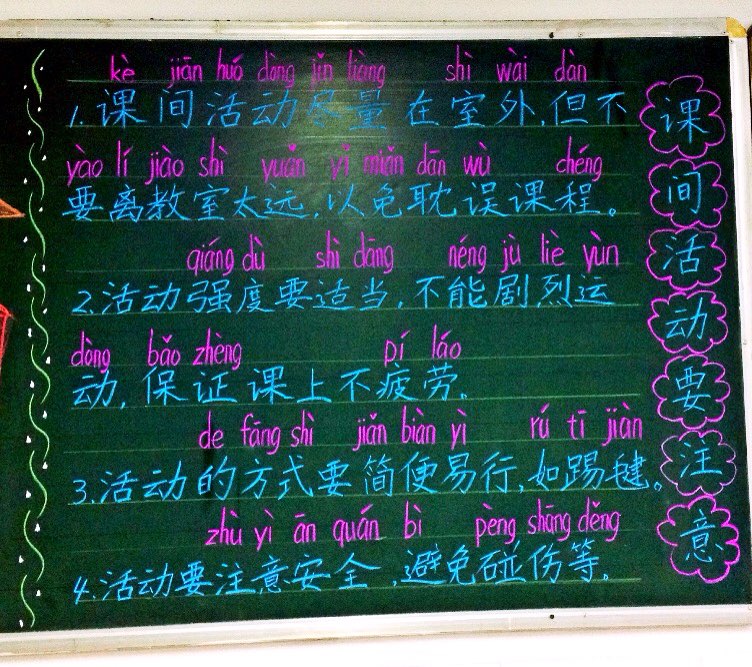 kè jiān huó dòng jǐn liàng shì wài dàn
1.课间活动尽量在室外,但不
yào lí jiào shì yuǎn yǐ miǎn dān wù chéng
要离教室太远,以免耽误课程。
qiáng dù shì dāng néng jù liè yùn
2.活动强度要适当,不能剧烈运
dòng bǎo zhèng pí láo
动,保证课上不疲劳。
de fāng shì jiǎn biàn yì rú tī jiàn
3.活动的方式要简便易行,如踢毽。
zhù yì ān quán bì pèng shāng děng
4.活动要注意安全,避免碰伤等。
课间活动要注意